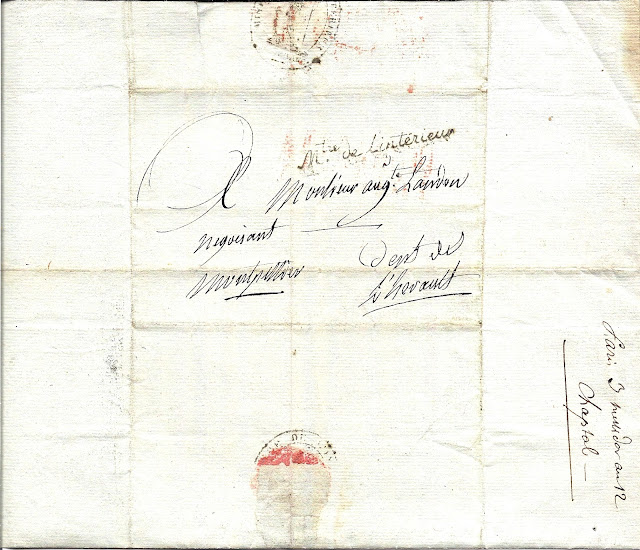 Mtre de l'intérieur
A Monsieur augte
négotiant
Montpellier
Dept de
L'herault
Paris 3 messidor an 12
Chaptal